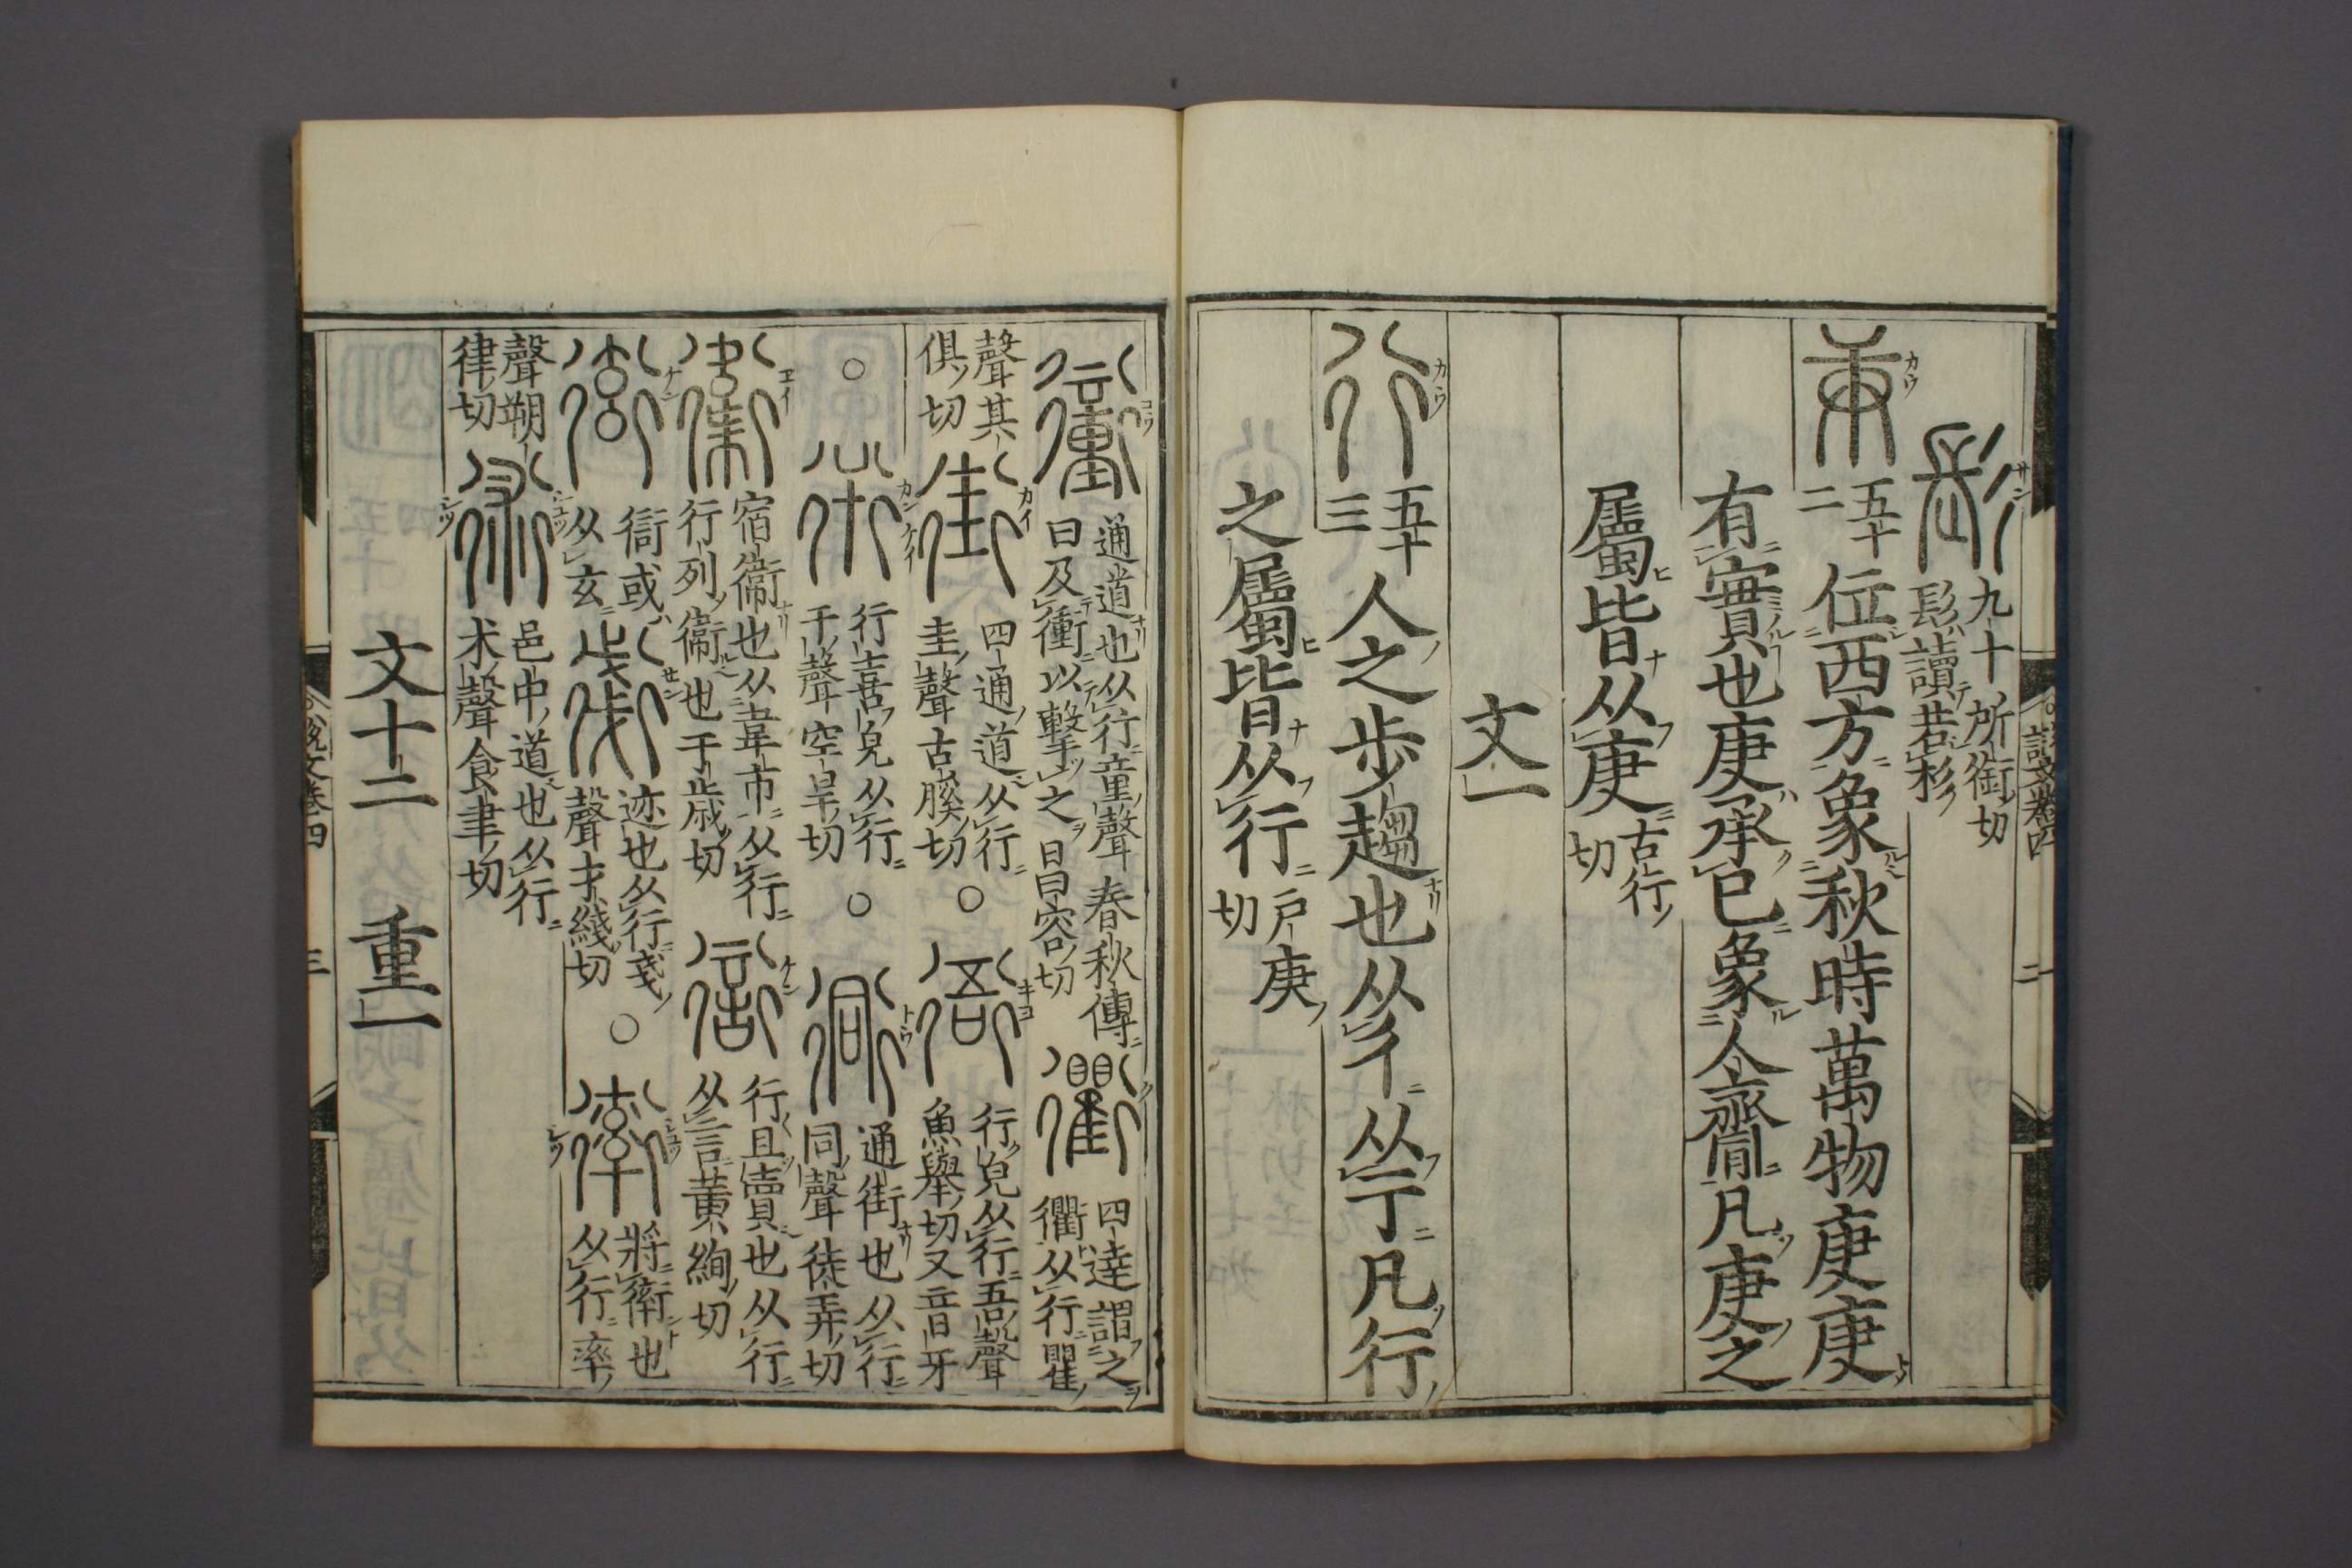 九十所銜切
髟讀若杉
五十
二
位西方象秋時萬物庚庚
有實也庚承已象人齎凡庚之
屬皆从庚
古行
切
文一
行
五十
三
人之步趨也从彳从亍凡行
之屬皆从行
戶庚
切
通道也从行童聲春秋傳
曰及衝以擊之昌容切
四達謂之
衢从行瞿
聲其
俱切
四通道从行
圭聲古膎切
○
行皃从行吾聲
魚舉切又音牙
○
行喜皃从行
干聲空旱切
○
通街也从行
同聲徒弄切
宿衞也从韋帀从行
行列衞也于歲切
行且賣也从行
从言黃絢切
衒或
从玄
迹也从行戔
聲才綫切
○
將衛也
从行率
聲朔
律切
邑中道也从行
朮聲食聿切
文十二 重一
說文卷四
三